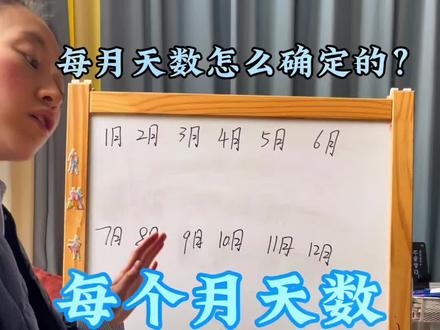 每月天数怎么确定的？
1月 2月 3月 4月 5月 6月
7月 8月 9月 10月 11月 12月
每个月天数